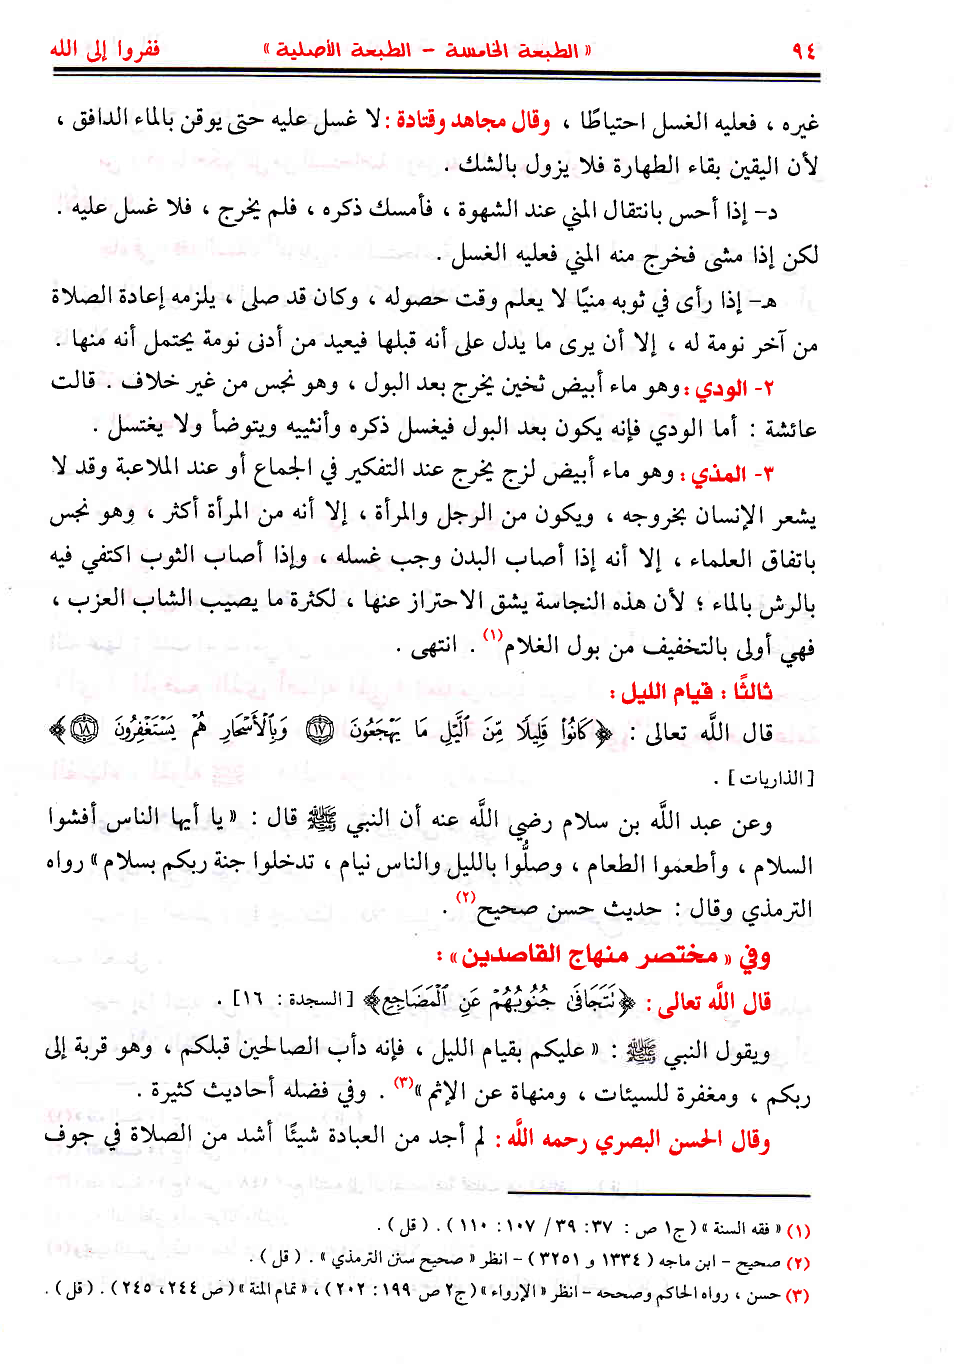 ٩٤ « الطبعة الخامسة – الطبعة الأصلية » ففروا إلى الله
غيره ، فعليه الغسل احتياطًا ، وقال مجاهد وقتادة : لا غسل عليه حتى يوقن بالماء الدافق ،
لأن اليقين بقاء الطهارة فلا يزول بالشك .
د– إذا أحس بانتقال المني عند الشهوة ، فأمسك ذكره ، فلم يخرج ، فلا غسل عليه .
لكن إذا مشى فخرج منه المني فعليه الغسل .
هـ– إذا رأى في ثوبه منيًا لا يعلم وقت حصوله ، وكان قد صلى ، يلزمه إعادة الصلاة
من آخر نومة له ، إلا أن يرى ما يدل على أنه قبلها فيعيد من أدنى نومة يحتمل أنه منها .
٢- الودي : وهو ماء أبيض ثخين يخرج بعد البول ، وهو نجس من غير خلاف . قالت
عائشة : أما الودي فإنه يكون بعد البول فيغسل ذكره وأنثييه ويتوضأ ولا يغتسل .
٣- المذي : وهو ماء أبيض لزج يخرج عند التفكير في الجماع أو عند الملاعبة وقد لا
يشعر الإنسان بخروجه ، ويكون من الرجل والمرأة ، إلا أنه من المرأة أكثر ، وهو نجس
باتفاق العلماء ، إلا أنه إذا أصاب البدن وجب غسله ، وإذا أصاب الثوب اكتفي فيه
بالرش بالماء ؛ لأن هذه النجاسة يشق الاحتراز عنها ، لكثرة ما يصيب الشاب العزب ،
فهي أولى بالتخفيف من بول الغلام(١) . انتهى .
ثالثًا : قيام الليل :
قال اللَّه تعالى : ﴿ كَانُوا۟ قَلِيلًا مِّنَ ٱلَّيْلِ مَا يَهْجَعُونَ ۝١٧ وَبِٱلْأَسْحَارِ هُمْ يَسْتَغْفِرُونَ ۝١٨ ﴾
[ الذاريات ] .
وعن عبد اللَّه بن سلام رضي اللَّه عنه أن النبي ﷺ قال : « يا أيها الناس أفشوا
السلام ، وأطعموا الطعام ، وصلُّوا بالليل والناس نيام ، تدخلوا جنة ربكم بسلام » رواه
الترمذي وقال : حديث حسن صحيح(٢) .
وفي « مختصر منهاج القاصدين » :
قال اللَّه تعالى : ﴿ نَتَجَافَىٰ جُنُوبُهُمْ عَنِ ٱلْمَضَاجِعِ ﴾ [ السجدة : ١٦ ] .
ويقول النبي ﷺ : « عليكم بقيام الليل ، فإنه دأب الصالحين قبلكم ، وهو قربة إلى
ربكم ، ومغفرة للسيئات ، ومنهاة عن الإثم »(٣) . وفي فضله أحاديث كثيرة .
وقال الحسن البصري رحمه اللَّه : لم أجد من العبادة شيئًا أشد من الصلاة في جوف
(١) « فقه السنة » ( ج١ ص : ٣٧ : ٣٩ / ١٠٧ : ١١٠ ) . ( قل ) .
(٢) صحيح – ابن ماجه ( ١٣٣٤ و ٣٢٥١ ) – انظر « صحيح سنن الترمذي » . ( قل ) .
(٣) حسن ، رواه الحاكم وصححه – انظر « الإرواء » ( ج٢ ص ١٩٩ : ٢٠٢ ) ، « تمام المنة » ( ص ٢٤٤ ، ٢٤٥ ) . ( قل ) .